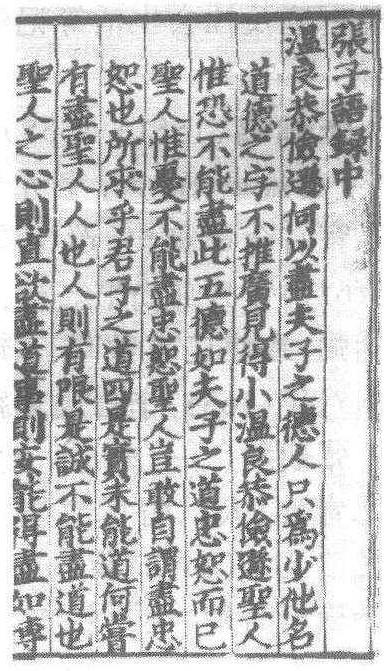 張子語録中
溫良恭儉遜何以盡夫子之德人只爲少他名
道德之字不推廣見得小溫良恭儉遜聖人
惟恐不能盡此五德如夫子之道忠恕而已
聖人惟憂不能盡忠恕聖人豈敢自謂盡忠
恕也所求乎君子之道四是實未能道何嘗
有盡聖人人也人則有限是誠不能盡道也
聖人之心則直欲盡道事則安能得盡如專